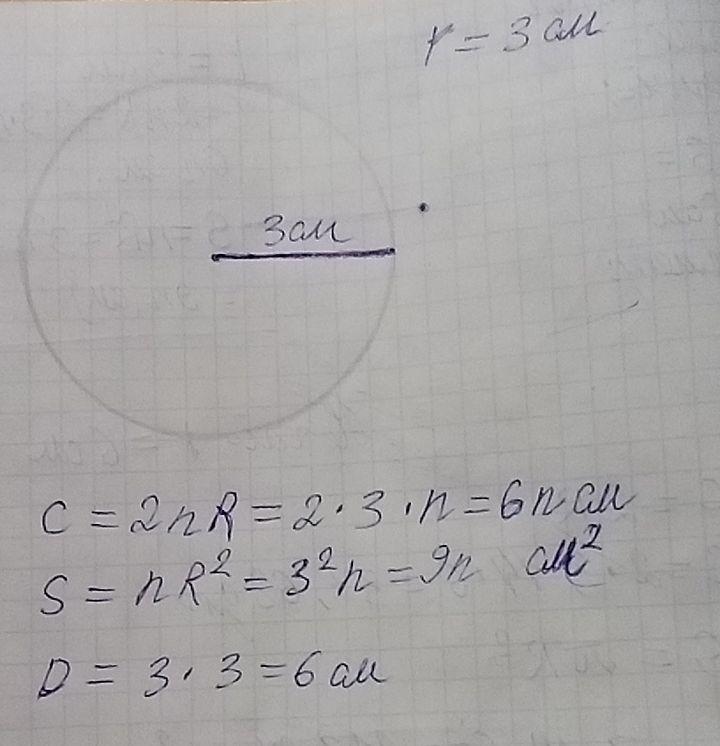 r = 3 см
3 см
C = 2πR = 2 · 3 · π = 6π см
S = πR² = 3²π = 9π см²
D = 3 · 3 = 6 см